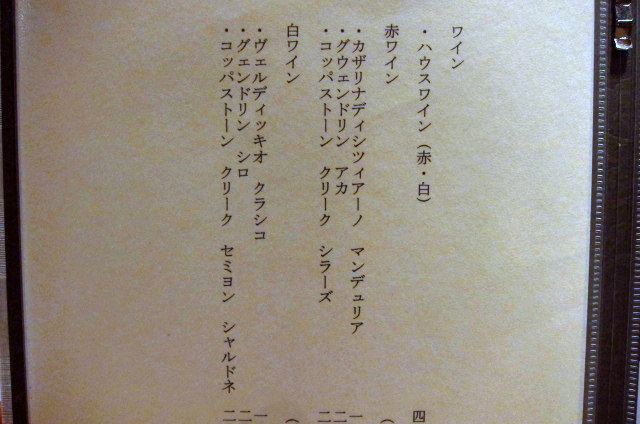 ワイン
・ハウスワイン（赤・白） 四
赤ワイン （
・カザリナディシツィアーノ マンデュリア 一
・グウェンドリン アカ 二
・コッパストーン クリーク シラーズ 二
白ワイン （
・ヴェルディッキオ クラシコ 一
・グェンドリン シロ 二
・コッパストーン クリーク セミヨン シャルドネ 二